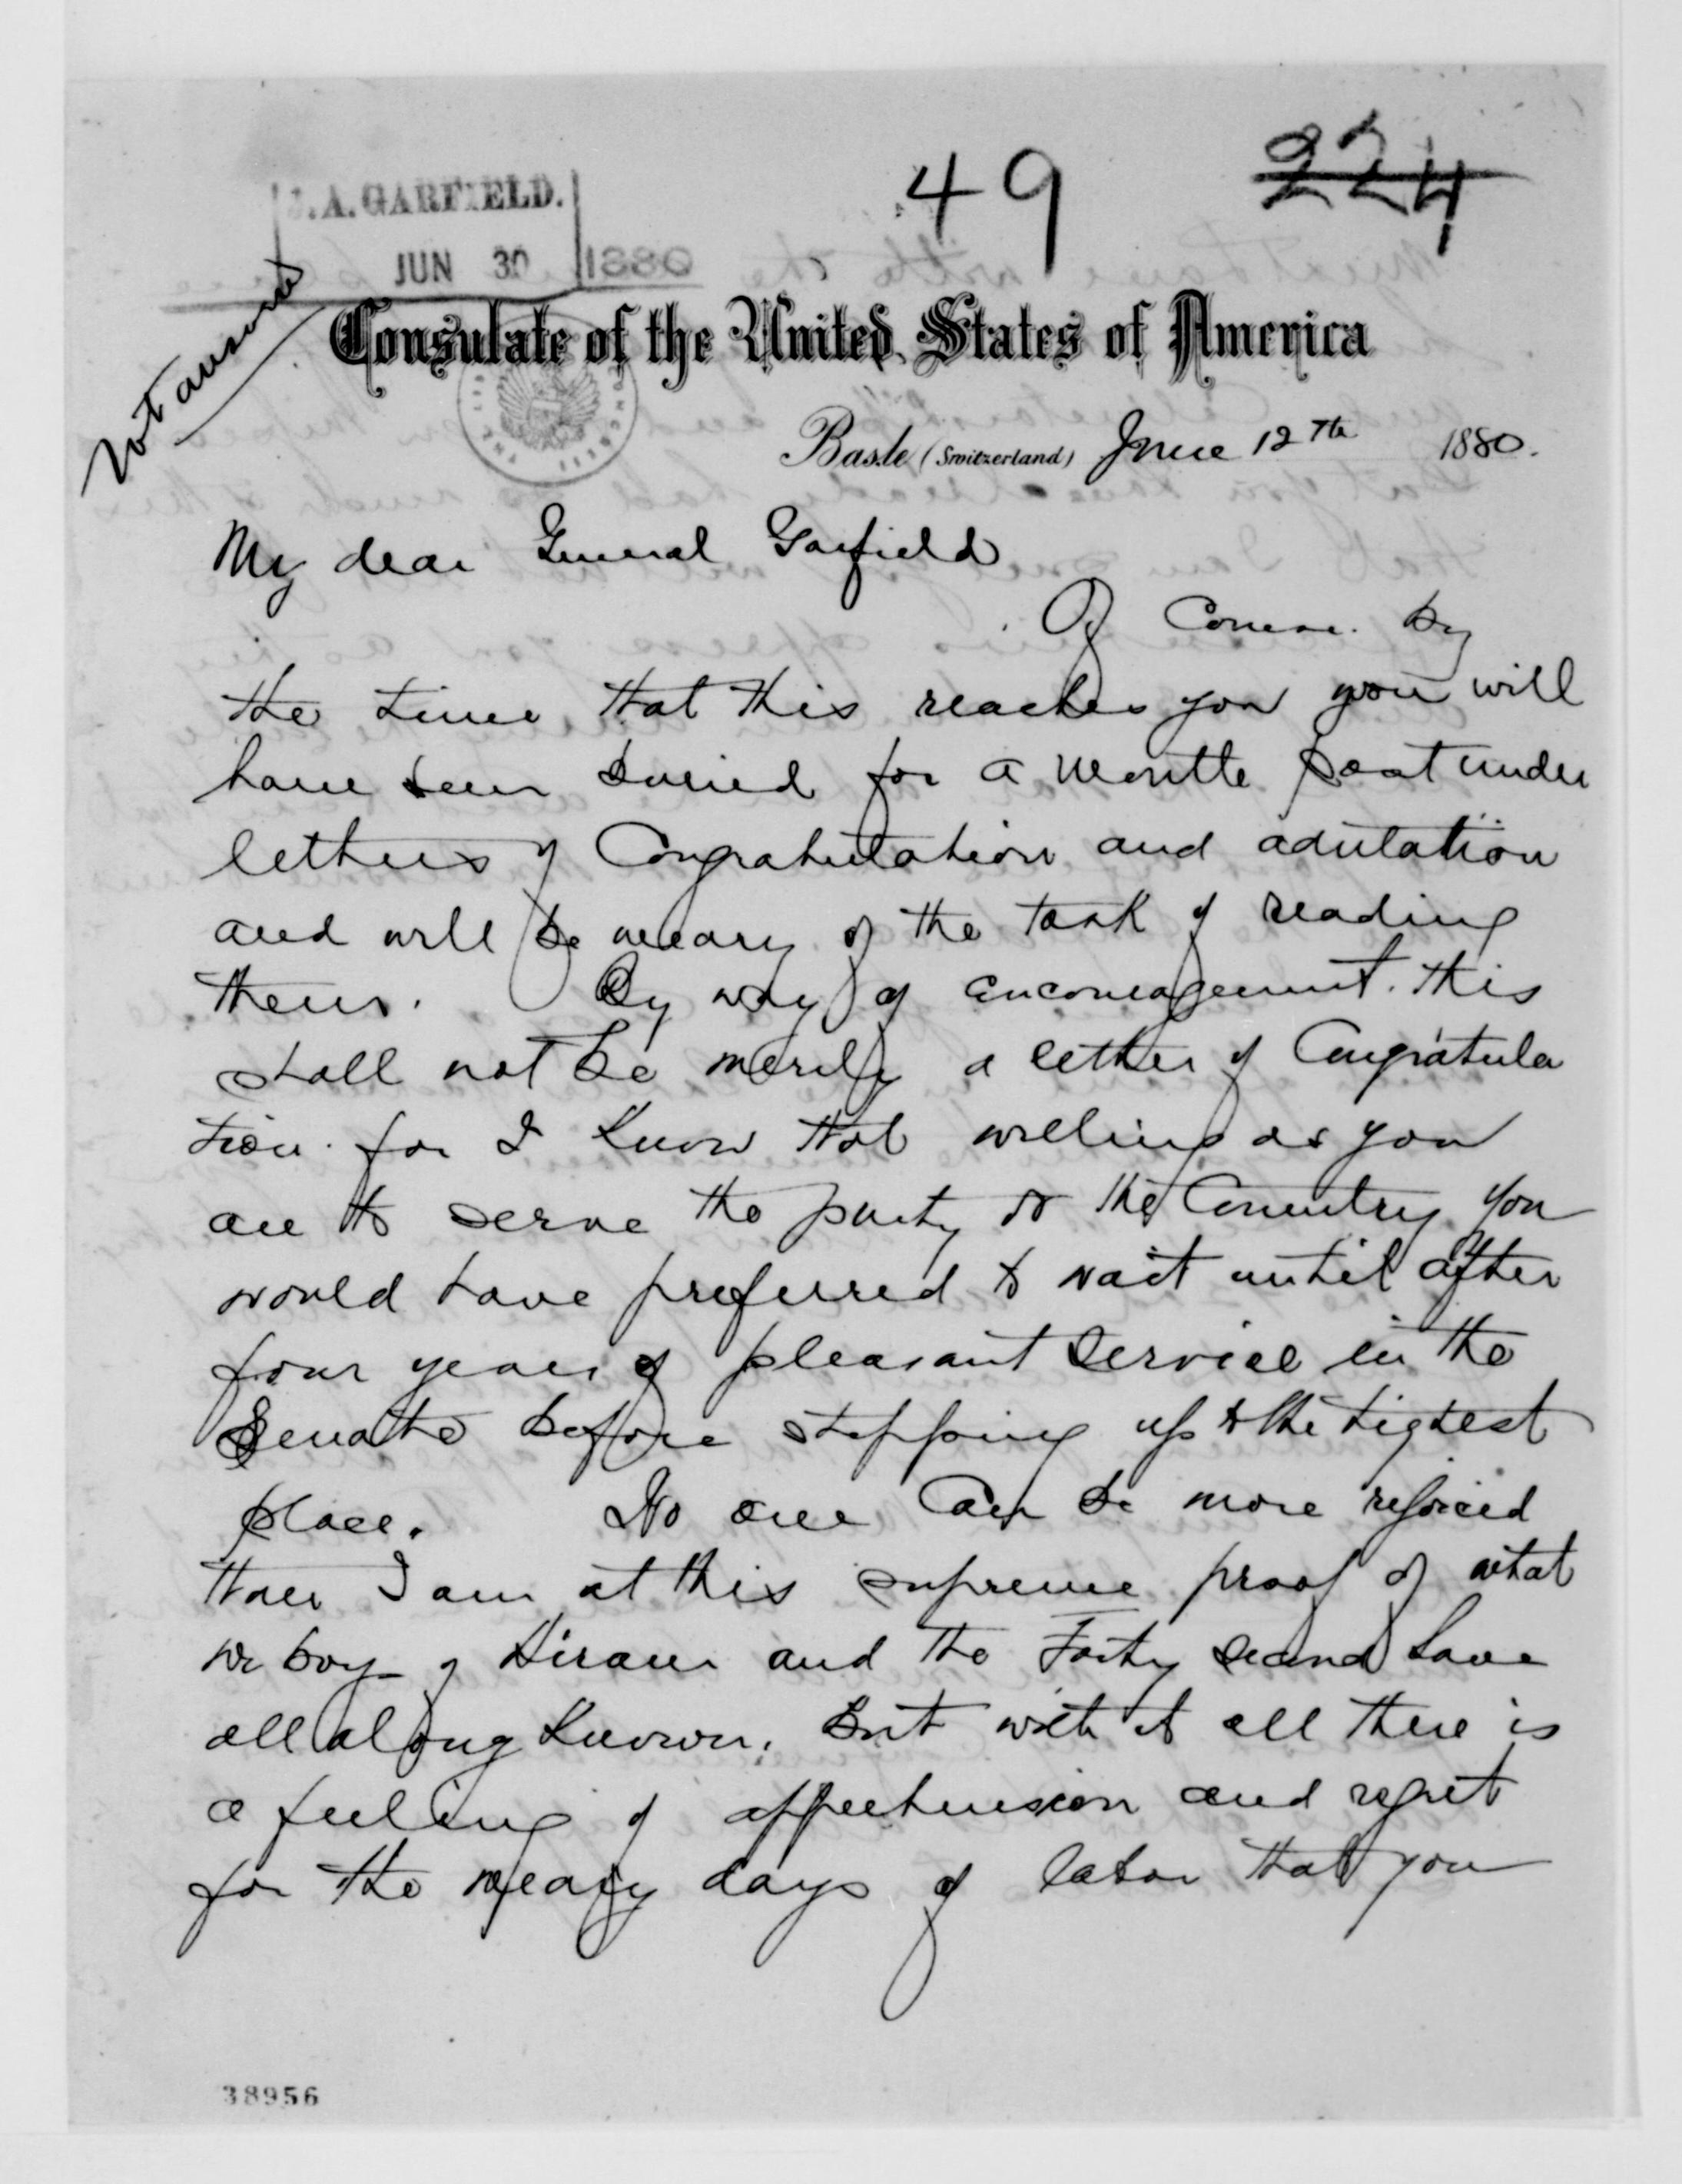 49 224
J.A. GARFIELD.
JUN 30 1880
Not answered
Consulate of the United States of America
Basle (Switzerland) June 12th 1880.
My dear General Garfield
Of Course. by
the time that this reaches you you will
have been buried for a month past under
letters of Congratulation and adulation
and will be weary of the task of reading
them. By way of encouragement. this
shall not be merely a letter of Congratula
tion. for I know that willing as you
are to serve the party & the Country you
would have preferred to wait until after
four years of pleasant service in the
Senate before stepping up to the highest
place. No one can be more rejoiced
than I am at this supreme proof of what
we boys of Hiram and the Forty second have
all along known. But with it all there is
a feeling of apprehension and regret
for the weary days of labor that you
38956